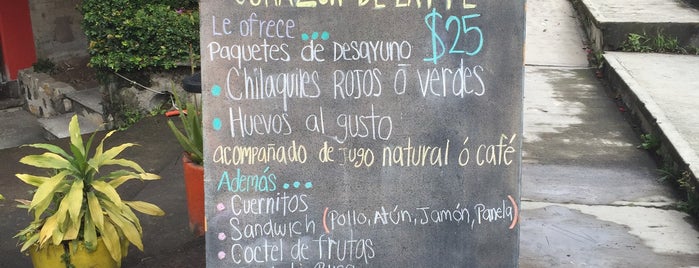 CORAZON DE LATTE
Le ofrece...
Paquetes de Desayuno $25
• Chilaquiles Rojos ō verdes
• Huevos al gusto
acompañado de jugo natural ó café
Además...
• Cuernitos
• Sandwich (Pollo, Atún, Jamón, Panela)
• Coctel de frutas